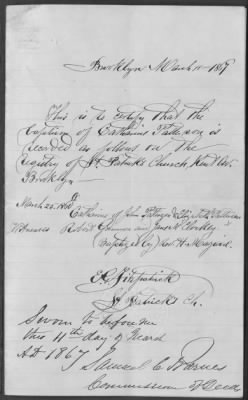 Brooklyn March 11 1867
This is to certify that the
baptism of Catharine Patterson is
recorded as follows on the
registry of St Patricks Church, Kent Av.
Brooklyn
March 25. Catharine of John & Elizabeth
Witnesses Robert and
baptized by Rev. H.
E. G. Fitzpatrick
St Patricks Ch.
Sworn to before me
this 11th day of March
AD 1867
Samuel C Barnes
Commission of Deeds